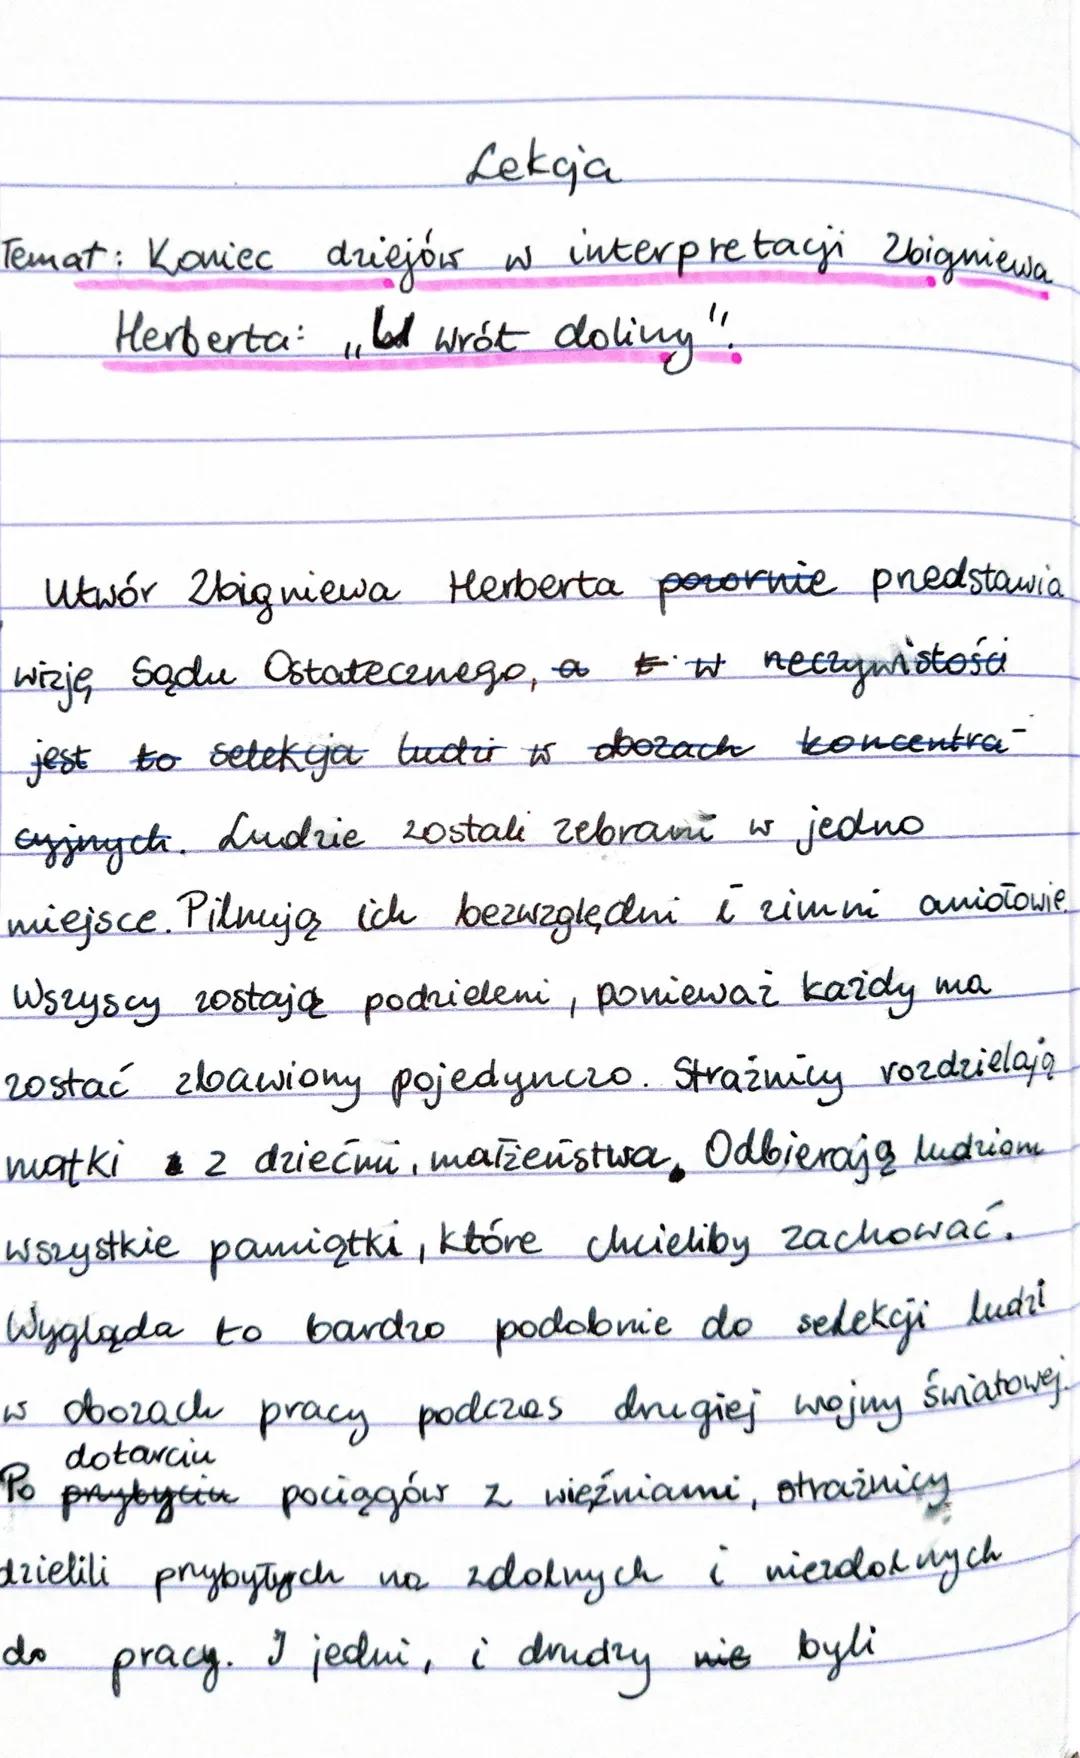 Lekcja
Temat: Koniec dziejów w interpretacji Zbigniewa
Herberta: „U wrót doliny".
Utwór Zbigniewa Herberta pozornie przedstawia
wizję Sądu Ostatecznego, a t w rzeczywistości
jest to selekcja ludzi w obozach koncentra-
cyjnych. Ludzie zostali zebrani w jedno
miejsce. Pilnują ich bezwzględni i zimni aniołowie.
Wszyscy zostają podzieleni, ponieważ każdy ma
zostać zbawiony pojedynczo. Strażnicy rozdzielają
matki z dziećmi, małżeństwa. Odbierają ludziom
wszystkie pamiątki, które chcieliby zachować.
Wygląda to bardzo podobnie do selekcji ludzi
w obozach pracy podczas drugiej wojny światowej.
dotarciu
Po przybyciu pociągów z więźniami, strażnicy
dzielili przybyłych na zdolnych i niezdolnych
do pracy. I jedni, i drudzy nie byli